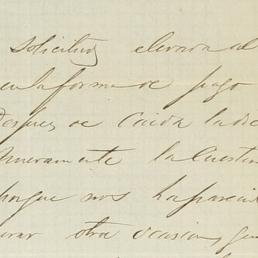 solicitud elevada al
en la forma de pago
Despues de Caida la de
nuevamente la Cuestion
porque nos ha pareci
otra ocasion, que